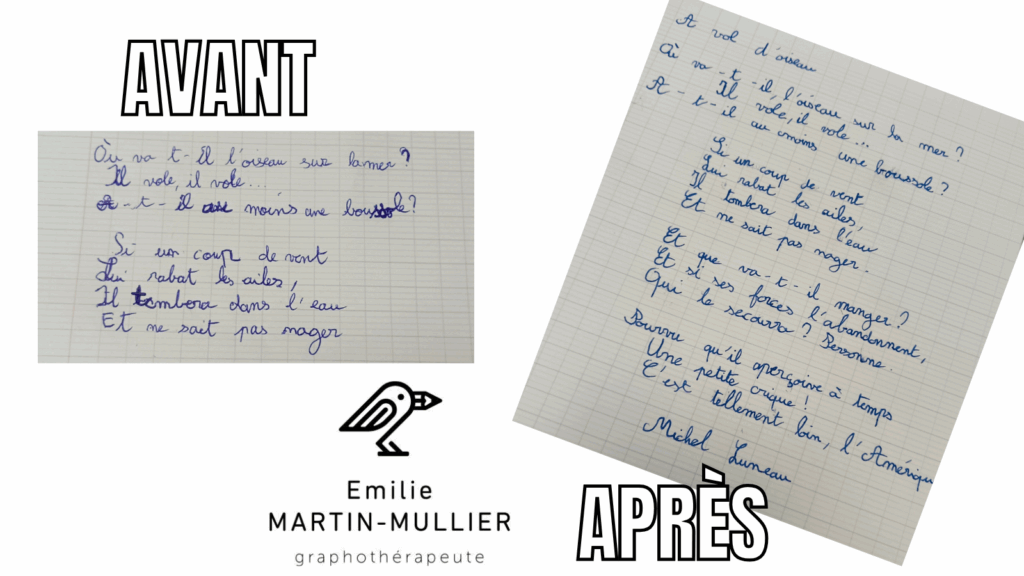 AVANT
Où va t-il l'oiseau sur la mer ?
Il vole, il vole...
A-t-il moins une boussole ?
Si un coup de vent
Lui rabat les ailes,
Il tombera dans l'eau
Et ne sait pas nager
Emilie
MARTIN-MULLIER
graphothérapeute
A vol d'oiseau
Où va-t-il, l'oiseau sur la mer ?
Il vole, il vole...
A-t-il au moins une boussole ?
Si un coup de vent
Lui rabat les ailes,
Il tombera dans l'eau
Et ne sait pas nager.
Et que va-t-il manger ?
Et si ses forces l'abandonnent,
Qui le secourra ? Personne.
Pourvu qu'il aperçoive à temps
Une petite crique !
C'est tellement loin, l'Amériqu
Michel Luneau
APRÈS